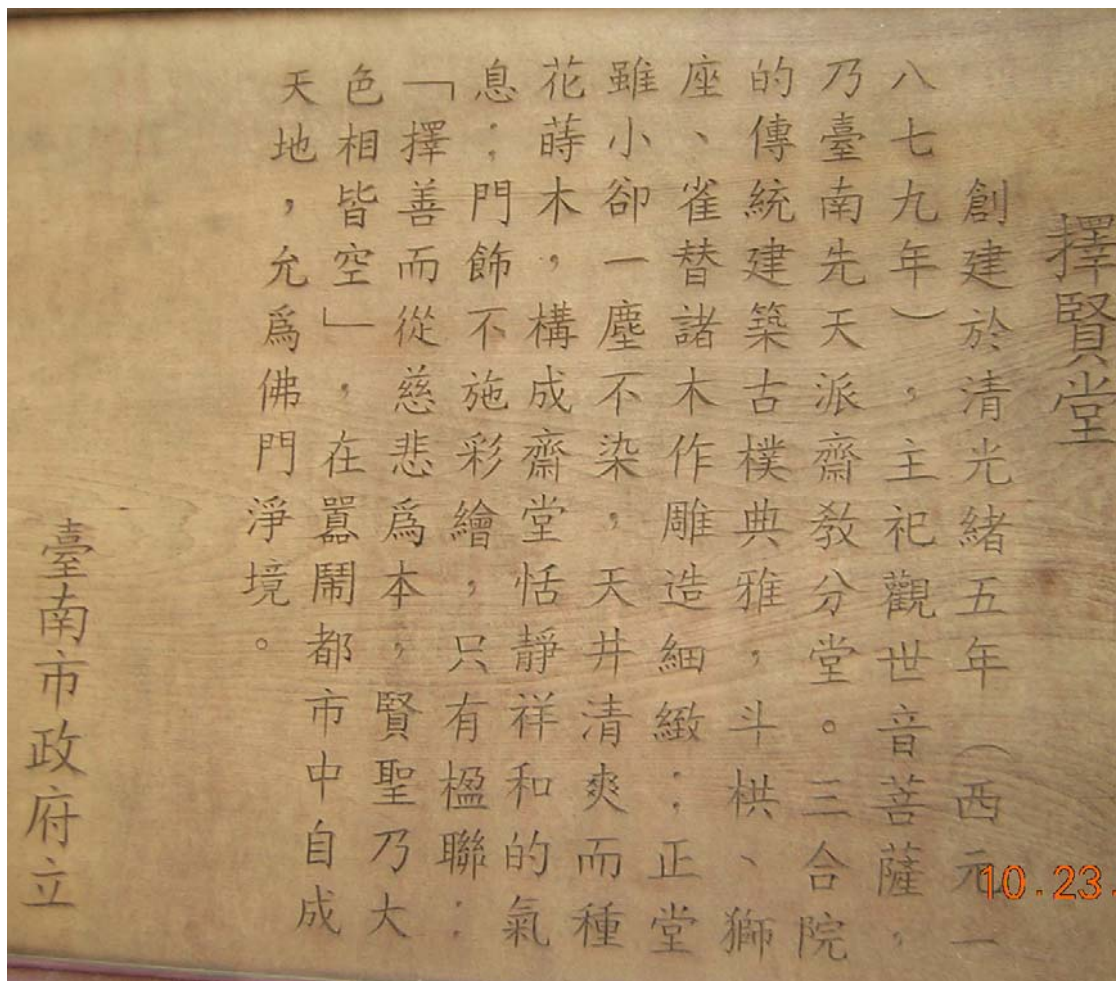 擇賢堂
創建於清光緒五年（西元一
八七九年），主祀觀世音菩薩，
乃臺南先天派齋教分堂。三合院
的傳統建築古樸典雅，斗栱、獅
座、雀替諸木作雕造細緻；正堂
雖小卻一塵不染，天井清爽而種
花蒔木，構成齋堂恬靜祥和的氣
息；門飾不施彩繪，只有楹聯：
「擇善而從慈悲爲本，賢聖乃大
色相皆空」，在囂鬧都市中自成
天地，允爲佛門淨境。
臺南市政府立
10.23.